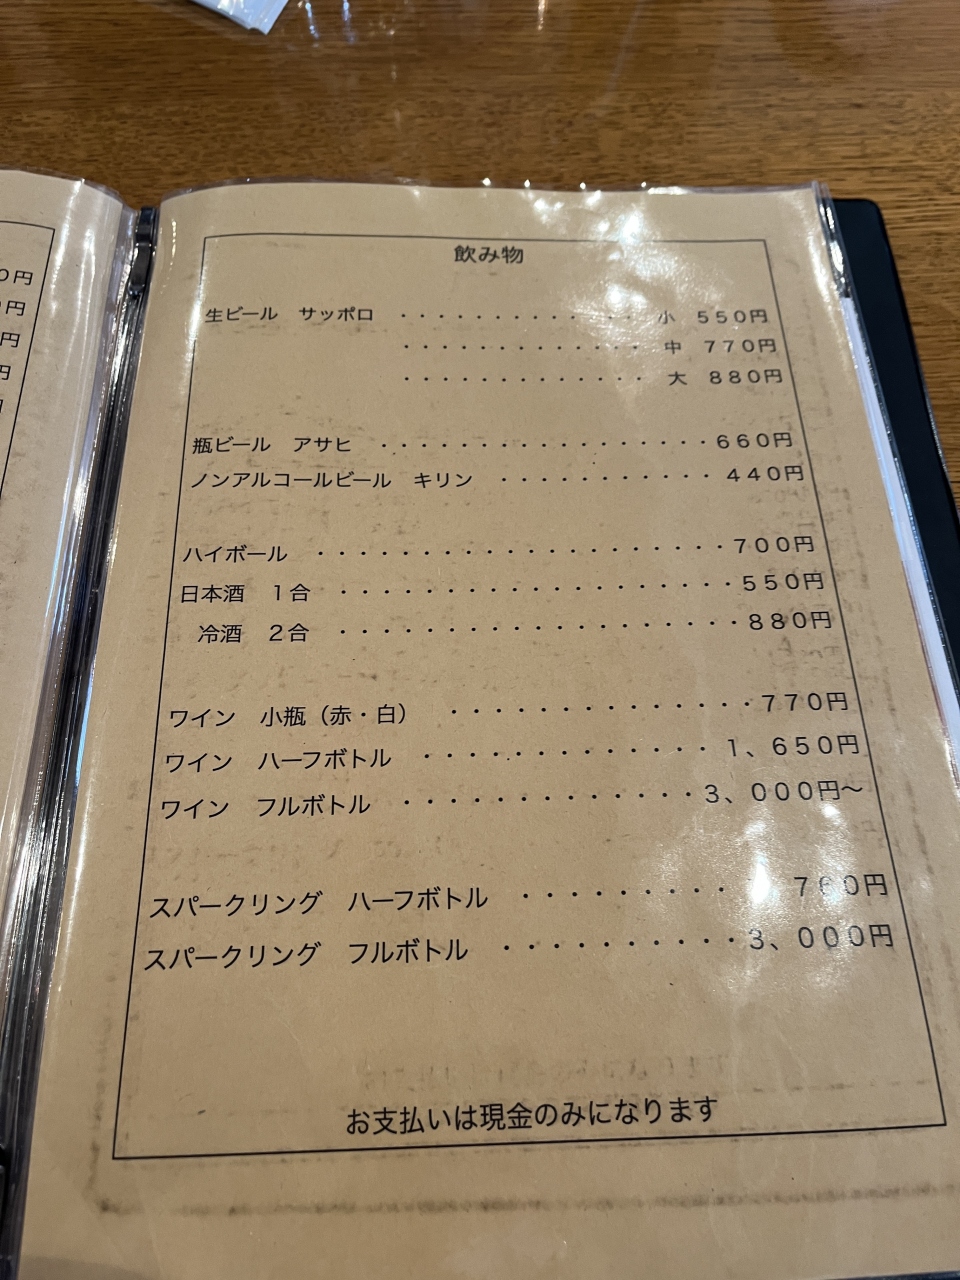 飲み物
生ビール　サッポロ　・・・・・・・・・・・・・　小　５５０円
・・・・・・・・・・・・・　中　７７０円
・・・・・・・・・・・・・　大　８８０円
瓶ビール　アサヒ　・・・・・・・・・・・・・・・・・・６６０円
ノンアルコールビール　キリン　・・・・・・・・・・・・４４０円
ハイボール　・・・・・・・・・・・・・・・・・・・・・７００円
日本酒　１合　・・・・・・・・・・・・・・・・・・・・５５０円
冷酒　２合　・・・・・・・・・・・・・・・・・・・・８８０円
ワイン　小瓶（赤・白）　・・・・・・・・・・・・・・・７７０円
ワイン　ハーフボトル　・・・・・・・・・・・・・・１、６５０円
ワイン　フルボトル　・・・・・・・・・・・・・・３、０００円〜
スパークリング　ハーフボトル　・・・・・・・・・　円
スパークリング　フルボトル　・・・・・・・・・・３、０００円
お支払いは現金のみになります